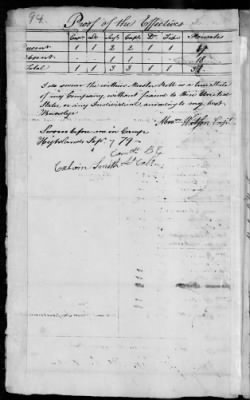 94.
Proof of the Effectives
Capt Lt Serjt Corpl Dr Fifer Privates
present 1 1 2 2 1 1
Absent 1 1
Total 1 1 3 3 1 1
I do swear the within Muster Roll is a true State
of my Company, without fraud to these United
States, or any Individual, according to my best
Knowledge
Watson Capt.
Sworn before me in Camp
Highlands Sept 7 79
Calvin Smith Lt Colo